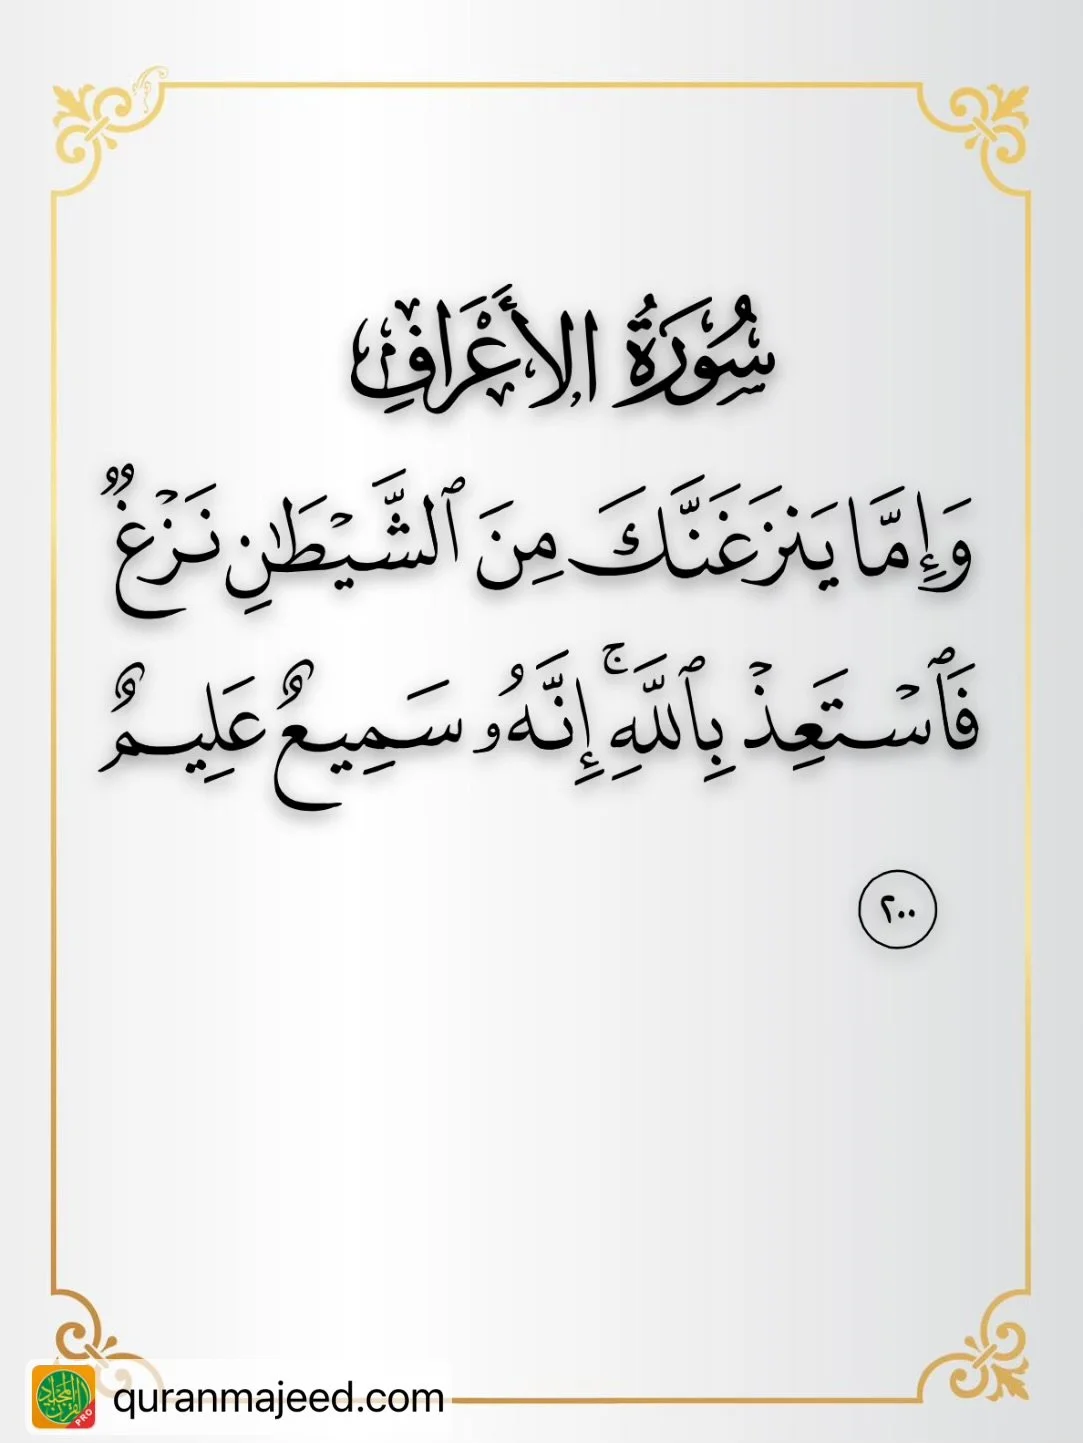 سُورَةُ الأَعْرَافِ
وَإِمَّا يَنزَغَنَّكَ مِنَ ٱلشَّيْطَٰنِ نَزْغٌ
فَٱسْتَعِذْ بِٱللَّهِ ۚ إِنَّهُۥ سَمِيعٌ عَلِيمٌ
٢٠٠
quranmajeed.com